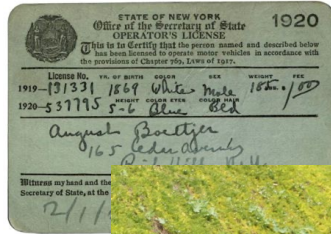 STATE OF NEW YORK
Office of the Secretary of State
OPERATOR'S LICENSE
1920
This is to Certify that the person named and described below
has been licensed to operate motor vehicles in accordance with
the provisions of Chapter 769, Laws of 1917.
License No. YR. OF BIRTH COLOR SEX WEIGHT FEE
1919—131331 1869 White Male
HEIGHT COLOR EYES COLOR HAIR
1920—537795 5-6 Blue
August Boettger
165 Cedar Avenue
Witness my hand and the
Secretary of State, at the